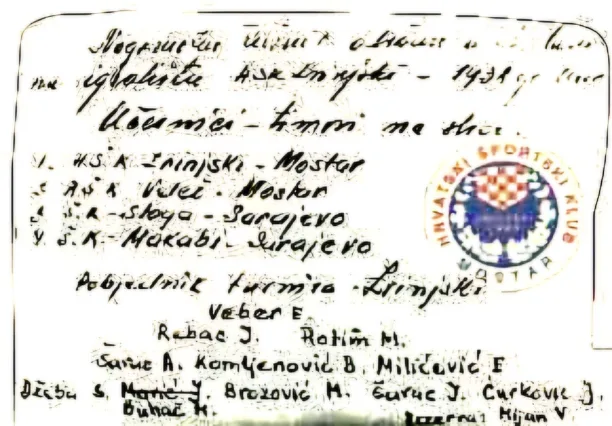 na igralištu HŠK Zrinjski - 1938
Učesnici - timovi na slici.
1. H.Š.K Zrinjski - Mostar
2. R.Š.K Velež - Mostar
3. Š.K - Sloga - Sarajevo
4. Š.K - Makabi - Sarajevo
Pobjednik turnira - Zrinjski
Veber E.
Rebac J. Rotim M.
Šarac A. Komljenović B. Milićević E
Džeba S. Marić J. Brozović M. Šarac J. Ćurković J.
Buhač M. Mijan V.
HRVATSKI ŠPORTSKI KLUB
MOSTAR